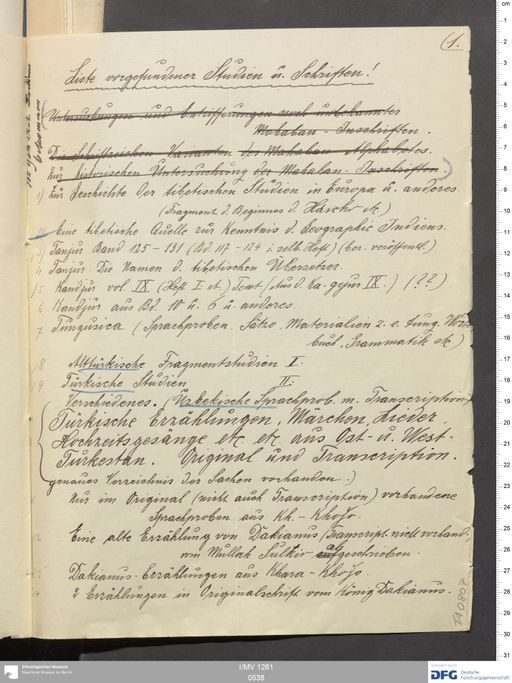 (1.
Liste vorgefundener Studien u. Schriften!
Untersuchungen und Entzifferungen noch unbekannter
Mahaban-Inschriften.
Die Schriftzeichen Varianten des Mahaban-Alphabetes.
Zur historischen Untersuchung der Mahaban-Inschriften.)
1) Zur Geschichte der tibetischen Studien in Europa u. anderes.
(Fragment d. Beginnes d. etc)
Eine tibetische Quelle zur Kenntnis d. Geographie Indiens.
3) Tanjur Band 125-131 (Bd 117-124 i. selb. Heft) (ber. veröffentl.)
4 Tanjur. Die Namen d. tibetischen Übersetzer.
5 Kandjur vol. IX (Heft I et.) Text / aus d. Ka-gyur IX.) (??)
6 Kandjur aus Bd. 10 u. 6 u. anderes.
7 Tungusica (Sprachproben, Sätze, Materialien z. e. Tung. Wörter-
buch, Grammatik etc)
8 Alttürkische Fragmentstudien I.
9 Türkische Studien II.
Verschiedenes. (Uzbekische Sprachprob. m. Transcription)
Türkische Erzählungen, Märchen, Lieder,
Hochzeitsgesänge etc etc aus Ost- u. West-
Turkestan. Original und Transcription.
genaues Verzeichnis der Sachen vorhanden.)
Nur im Original (nicht auch Transcription) vorhandene
Sprachproben aus Kh.-Khojo.
12 Eine alte Erzählung von Dakianus, Transcript. nicht vorhand.
von Mullah aufgeschrieben.
Dakianus-Erzählungen aus Khara-Khojo.
2 Erzählungen in Originalschrift vom König Dakianus.
TA 0807
Ethnologisches Museum
Staatliche Museen zu Berlin
I/MV 1261
0538
DFG
Deutsche
Forschungsgemeinschaft